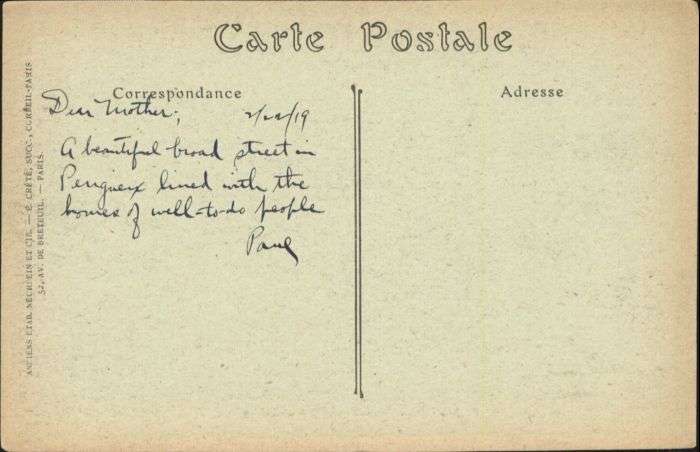 Carte Postale
Correspondance
Adresse
Dear Mother;
2/22/19
A beautiful broad street in
Perigueux lined with the
homes of well-to-do people
Paul
ANCIENS ETAB. NEURDEIN ET CIE. — E. CRÉTÉ, SUCC., CORBEIL-PARIS
52, AV. DE BRETEUIL. — PARIS